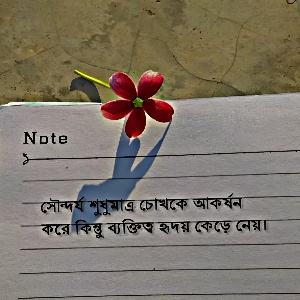 Note
সৌন্দর্য শুধুমাত্র চোখকে আকর্ষন
করে কিন্তু ব্যক্তিত্ব হৃদয় কেড়ে নেয়।